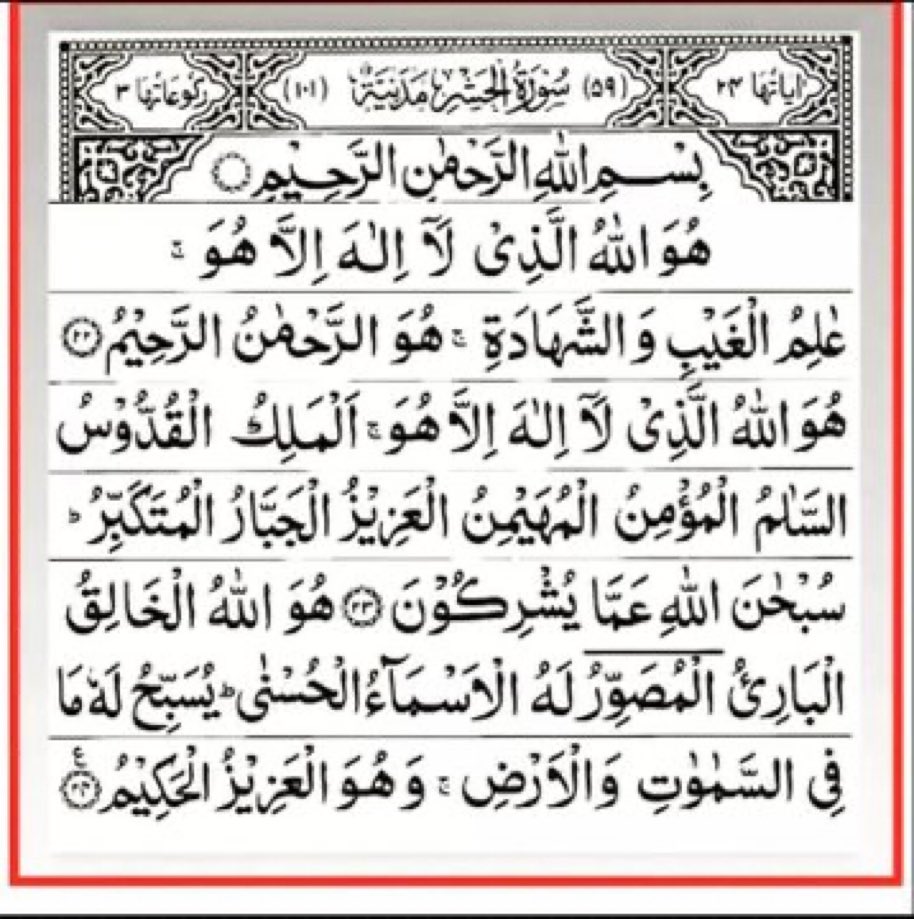 اٰیاتُهَا ۲۴ (۵۹) سُوْرَةُ الْحَشْرِ مَدَنِیَّةٌ (۱۰۱) رُكُوْعَاتُهَا ۳
بِسْمِ اللهِ الرَّحْمٰنِ الرَّحِیْمِ
هُوَ اللهُ الَّذِیْ لَاۤ اِلٰهَ اِلَّا هُوَ ۚ
عٰلِمُ الْغَیْبِ وَ الشَّهَادَةِ ۚ هُوَ الرَّحْمٰنُ الرَّحِیْمُ ﴿۲۲﴾
هُوَ اللهُ الَّذِیْ لَاۤ اِلٰهَ اِلَّا هُوَ ۚ اَلْمَلِكُ الْقُدُّوْسُ
السَّلٰمُ الْمُؤْمِنُ الْمُهَیْمِنُ الْعَزِیْزُ الْجَبَّارُ الْمُتَكَبِّرُ ؕ
سُبْحٰنَ اللهِ عَمَّا یُشْرِكُوْنَ ﴿۲۳﴾ هُوَ اللهُ الْخَالِقُ
الْبَارِئُ الْمُصَوِّرُ لَهُ الْاَسْمَآءُ الْحُسْنٰی ؕ یُسَبِّحُ لَهٗ مَا
فِی السَّمٰوٰتِ وَ الْاَرْضِ ۚ وَ هُوَ الْعَزِیْزُ الْحَكِیْمُ ﴿۲۴﴾ ع